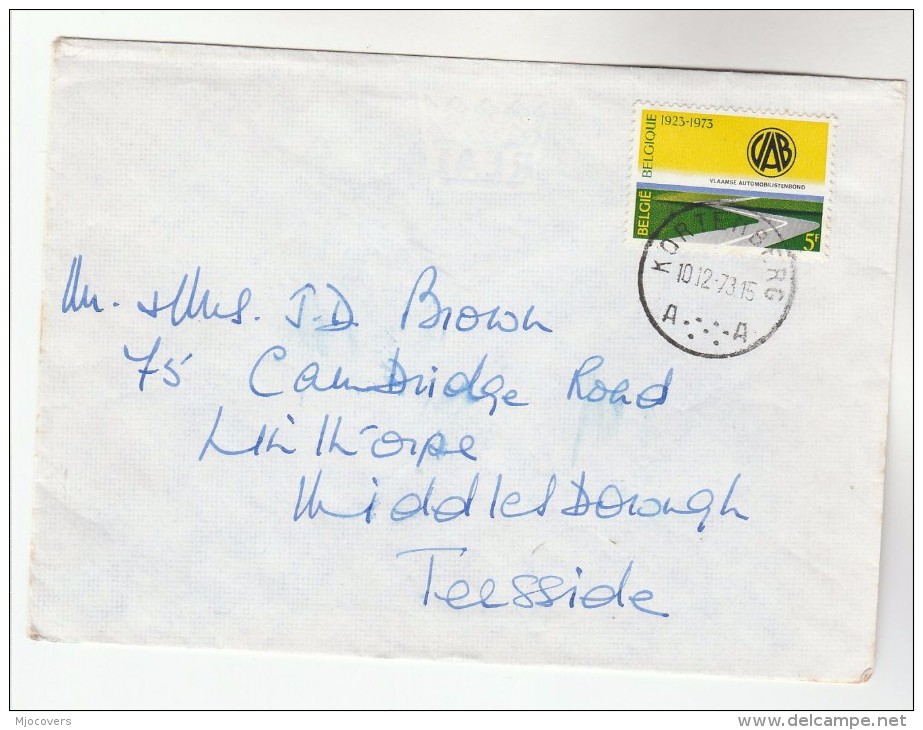 BELGIQUE 1923-1973
VAB
VLAAMSE AUTOMOBILISTENBOND
BELGIË
5F
KORTENBERG
10-12-73.15
A A
Mr. + Mrs. J.D. Brown
75 Cambridge Road
Linthorpe
Middlesborough
Teesside
Mjocovers
www.delcampe.net